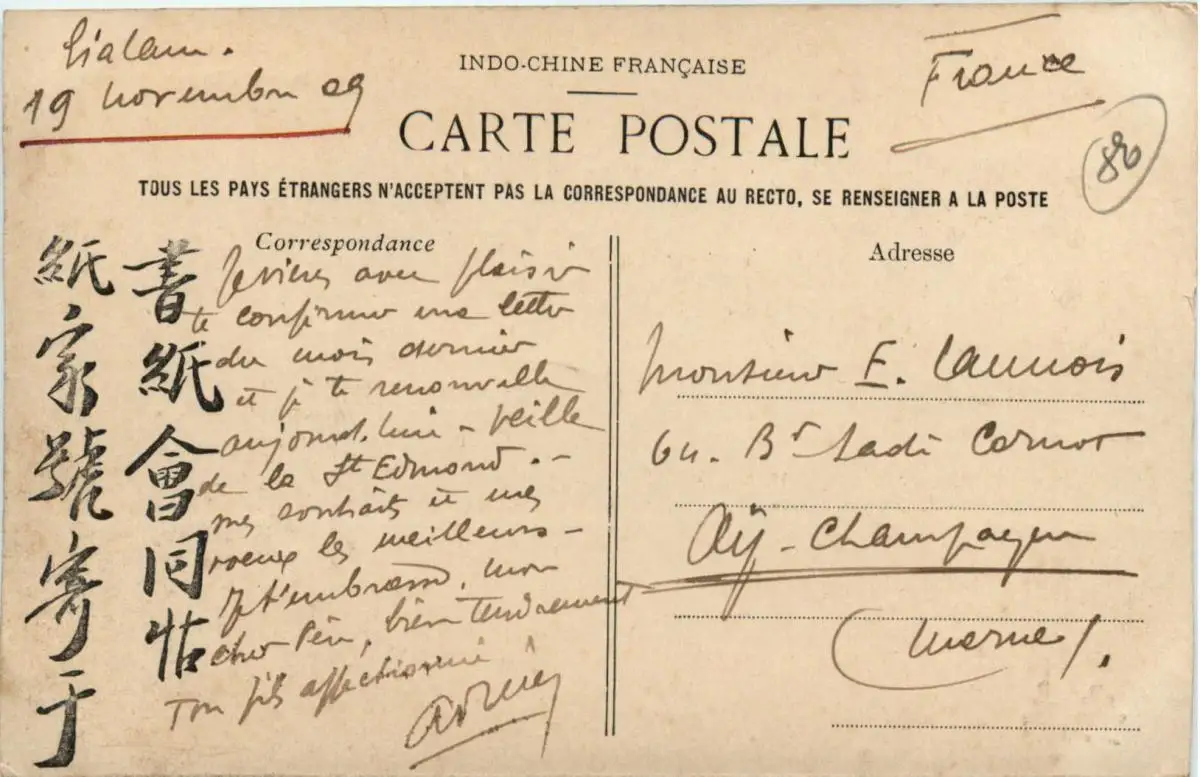 Gialam.
19 novembre 09
INDO-CHINE FRANÇAISE
France
CARTE POSTALE
86
TOUS LES PAYS ÉTRANGERS N'ACCEPTENT PAS LA CORRESPONDANCE AU RECTO, SE RENSEIGNER A LA POSTE
Correspondance
書紙會同帖
紙家號寄于
Je viens avec plaisir
te confirmer une lettre
du mois dernier
et je te renouvelle
aujourd'hui - veille
de la St Edmond. -
mes souhaits et mes
voeux les meilleurs -
Je t'embrasse, mon
cher Père, bien tendrement
Ton fils affectionné
Adresse
Monsieur E. Launois
64. Bd Sadi Carnot
Aÿ - Champagne
(Marne).